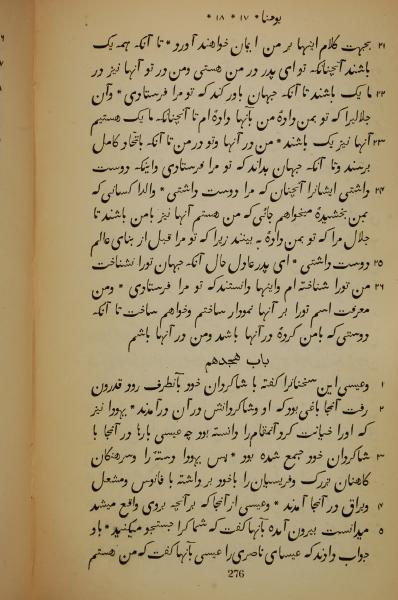 یوحنا * ۱۷ * ۱۸ *
۲۱ بجهت کلام اینها بر من ایمان خواهند آورد * تا آنکه همه یک
باشند آنچنانکه تو ای پدر در من هستی و من در تو آنها نیز در
۲۲ ما یک باشند تا آنکه جهان باور کند که تو مرا فرستادی * و آن
جلالیرا که تو بمن دادهٔ من بآنها داده‌ام تا آنچنانکه ما یک هستیم
۲۳ آنها نیز یک باشند * من در آنها و تو در من تا آنکه باتحاد کامل
برسند و تا آنکه جهان بداند که تو مرا فرستادی و اینکه دوست
۲۴ داشتی ایشانرا آنچنان که مرا دوست داشتی * والدا کسانی که
بمن بخشیدهٔ میخواهم جائی که من هستم آنها نیز با من باشند تا
جلال مرا که تو بمن دادهٔ به بینند زیرا که تو مرا قبل از بنای عالم
۲۵ دوست داشتی * ای پدر عادل حال آنکه جهان تورا نشناخت
۲۶ من تورا شناخته‌ام و اینها دانستند که تو مرا فرستادی * و من
معرفت اسم تورا بر آنها نمودار ساختم و خواهم ساخت تا آنکه
دوستی که با من کردهٔ در آنها باشد و من در آنها باشم
باب هجدهم
۱ و عیسی این سخنانرا گفته با شاگردان خود بآنطرف رود قدرون
۲ رفت آنجا باغی بود که او و شاگردانش در آن در آمدند * یهودا نیز
که اورا خیانت کرد آنمقام را دانسته بود چه عیسی بارها در آنجا با
۳ شاگردان خود جمع شده بود * پس یهودا دستهٔ را و سرهنگان
کاهنان بزرگ و فریسیان را با خود برداشته با فانوس و مشعل
۴ و یراق در آنجا آمدند * و عیسی از آنجا که بر آنچه بروی واقع میشد
۵ میدانست بیرون آمده بآنها گفت که شما کرا جستجو میکنید * باو
جواب دادند که عیسای ناصری را عیسی بآنها گفت که من هستم
276